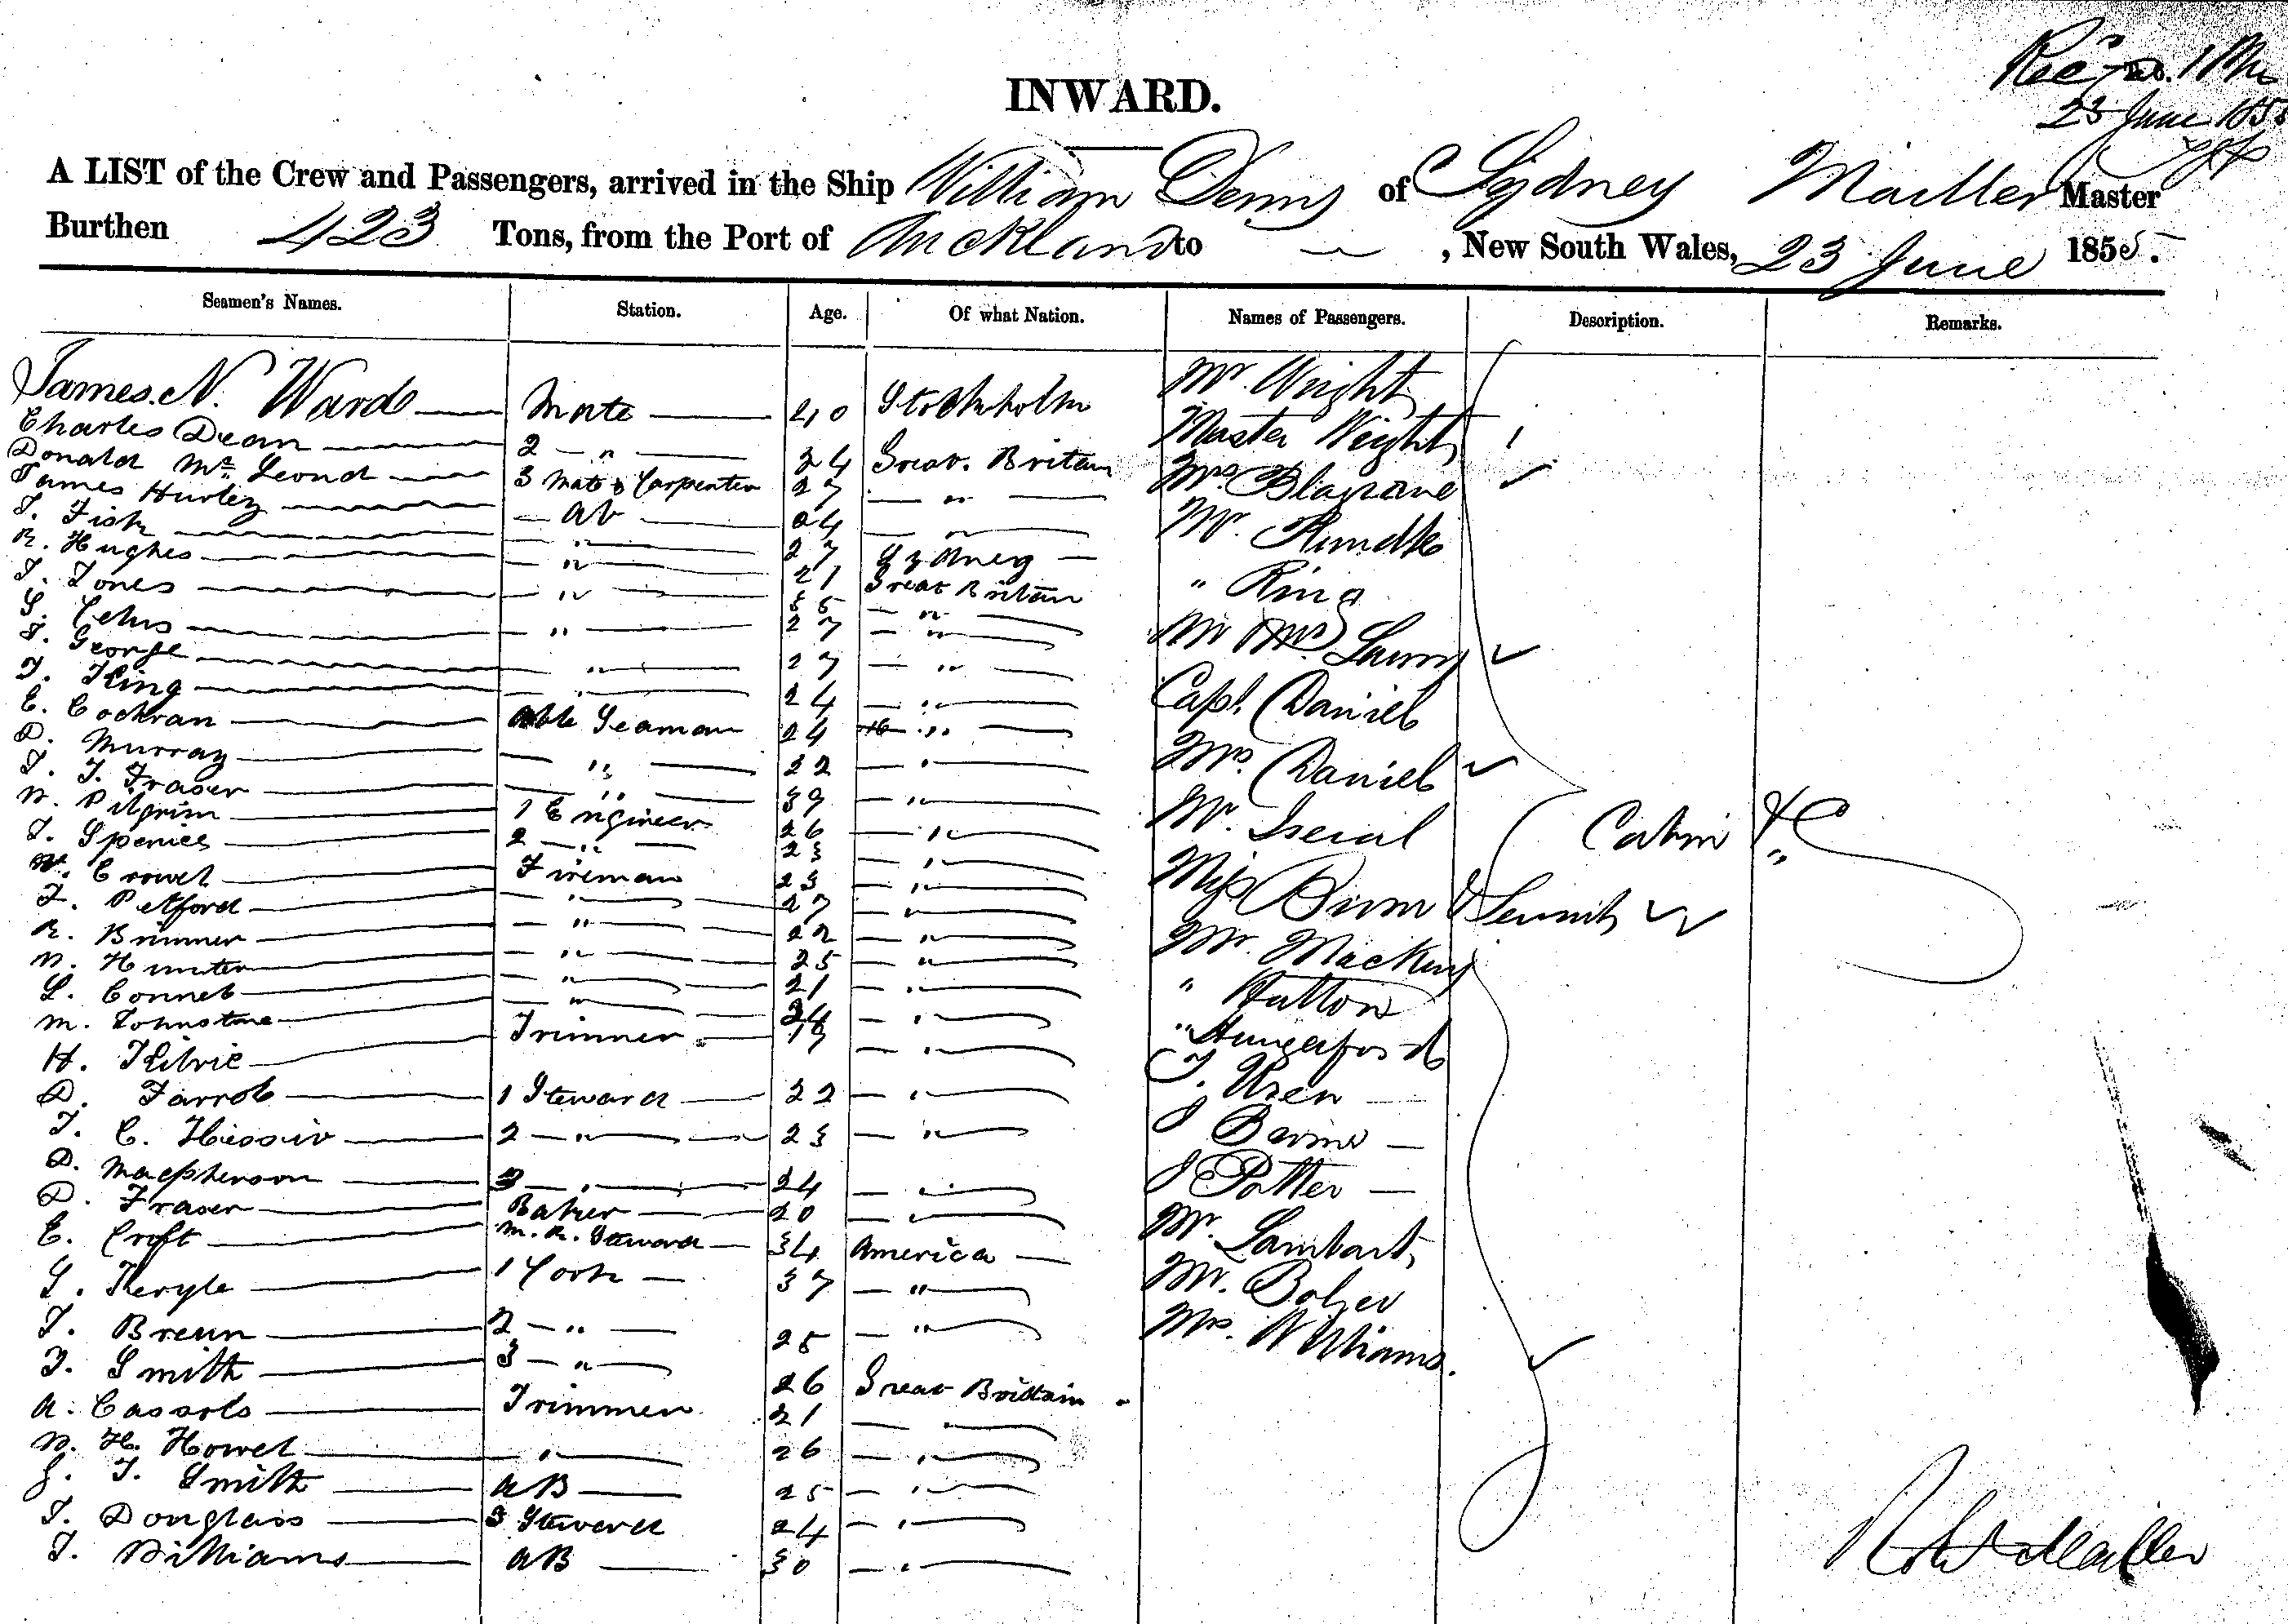 INWARD.
23 June 185
A LIST of the Crew and Passengers, arrived in the Ship William Denny of Sydney Mailler Master
Burthen 423 Tons, from the Port of Auckland to , New South Wales, 23 June 1855.
Seamen's Names. Station. Age. Of what Nation. Names of Passengers. Description. Remarks.
James N. Ward Mate 40 Stockholm Mr. Wright
Charles Dean 2 " 24 Great Britain Master Wright
Donald Mc Leond 3 Mate & Carpenter 27 " Mrs. Blaxland
James Hurley AB 24 " Mr.
J. Fish " 27 Sydney " King
R. Hughes " 21 Great Britain Mr Mrs
J. Jones " 35 " Capt. Daniel
S. " 27 " Mrs. Daniel
J. George " 27 " Mr. Iserial
J. King " 24 " Miss & Servant
E. Cockran Able Seaman 24 " Mr. Mackay
D. Murray " 22 " " Hutton
J. J. Fraser " 39 " " Hungaford
W. Pilgrim 1 Engineer 26 " J. Uren
J. Spenies 2 " 23 " J
W. Crowel Fireman 23 " J Potter
J. Petford " 27 " Mr. Lambart
R. Brimner " 22 " Mr.
W. Hunter " 25 " Mrs. Williams.
L. Connel " 21 " Cabin
M. Johnstone " 24 "
H. Kilvie Trimmer 17 "
D. Farrol 1 Steward 22 "
J. C. 2 " 23 "
D. Macpherson 3 " 24 "
D. Fraser Baker 20 "
E. Croft M. R. Steward 34 America
G. Keryle 1 Cook 37 "
J. Breun 2 " 25 "
J. Smith 3 " 26 Great Brittain
A. Cassols Trimmer 21 "
W. H. Howel " 26 "
J. J. Smith AB 25 "
J. Douglass 3 Steward 24 "
J. Williams AB 30 "
Mailler